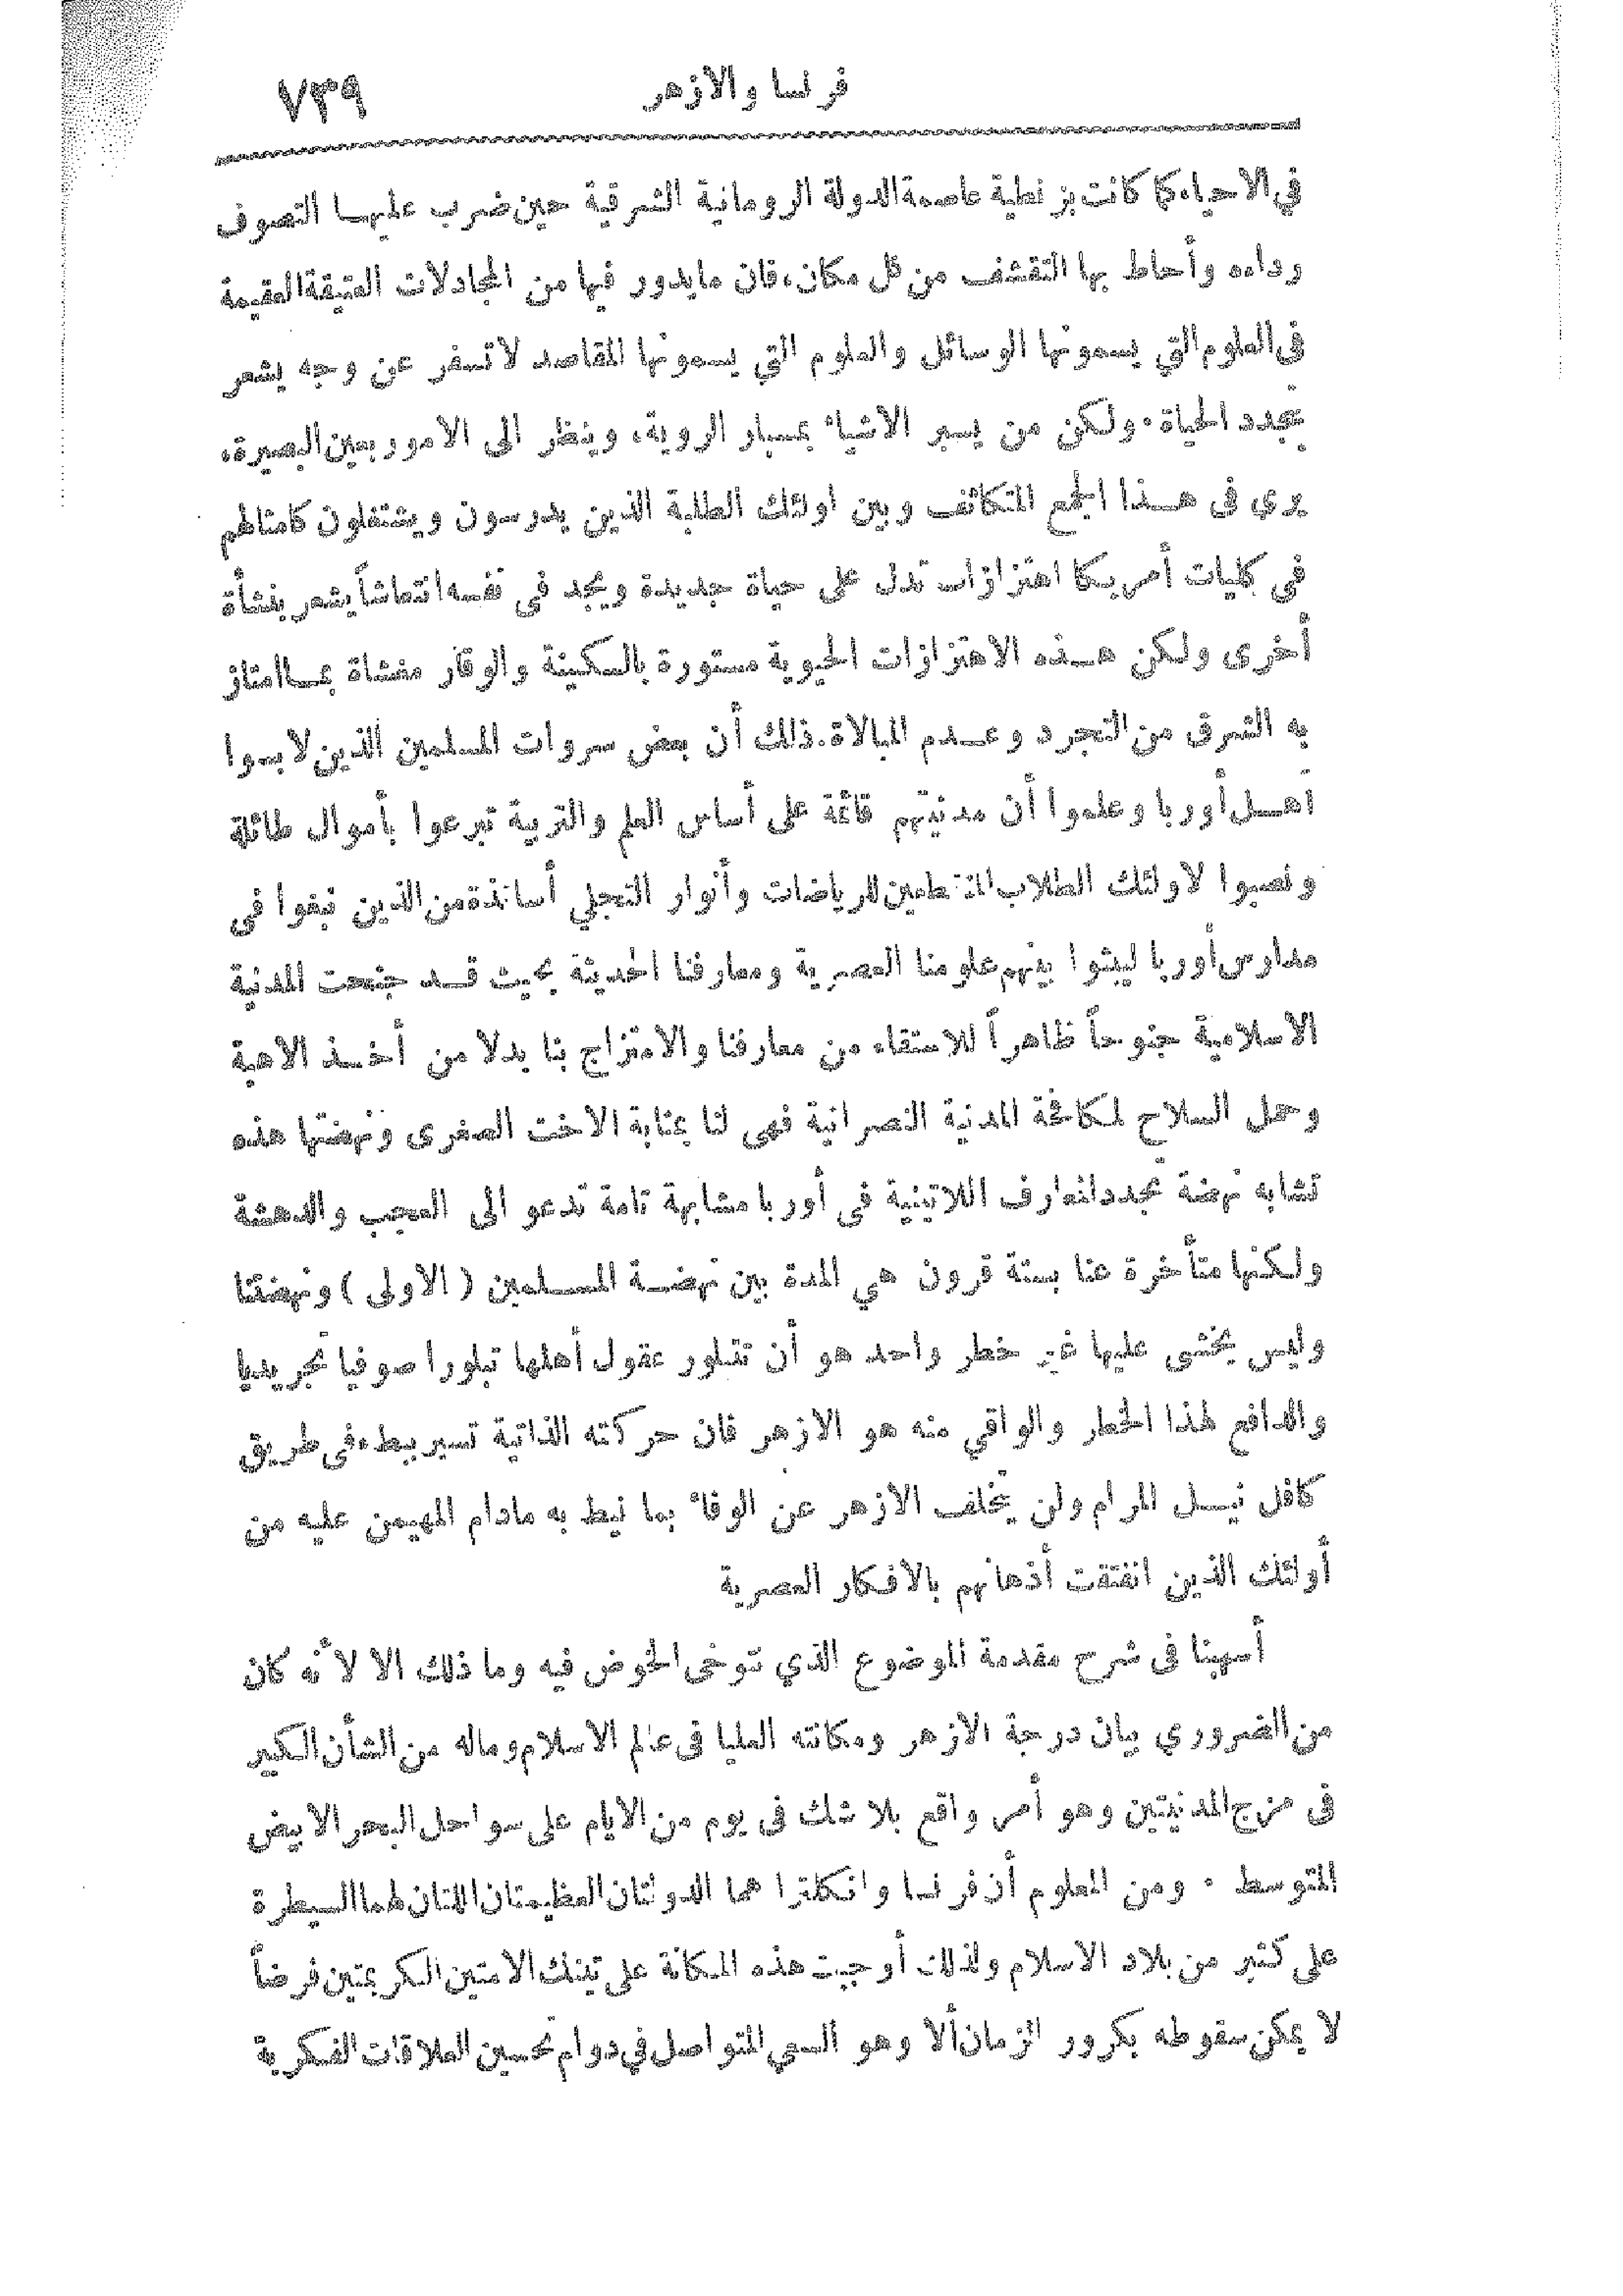 فرنسا والازهر ٧٣٩
في الاحياء كما كانت بزنطية عاصمة الدولة الرومانية الشرقية حين ضرب عليهـا التصوف
رداءه وأحاط بها التقشف من كل مكان، فان مايدور فيها من المجادلات العتيقة العقيمة
في العلوم التي يسمونها الوسائل والعلوم التي يسمونها المقاصد لاتسفر عن وجه يشعر
بتجدد الحياة. ولكن من يسبر الاشياء بمسبار الروية، وينظر الى الامور بعين البصيرة،
يرى في هـذا الجمع المتكاثف وبين اولئك الطلبة الذين يدرسون ويشتغلون كامثالهم
في كليات أمريكا اهتزازات تدل على حياة جديدة ويجد في نفسه انتعاشاً يشعر بنشأة
أخرى ولكن هـذه الاهتزازات الحيوية مستورة بالسكينة والوقار مغشاة بمـا امتاز
به الشرق من التجرد وعـدم المبالاة. ذلك أن بعض سروات المسلمين الذين لابسوا
أهـل أوربا وعلموا أن مدنيتهم قائمة على أساس العلم والتربية تبرعوا بأموال طائلة
ونصبوا لاولئك الطلاب المنقطعين للرياضات وأنوار التجلي أساتذة من الذين نبغوا في
مدارس أوربا ليبثوا بينهم علومنا العصرية ومعارفنا الحديثة بحيث قـد جنحت المدنية
الاسلامية جنوحاً ظاهراً للاستقاء من معارفنا والامتزاج بنا بدلا من أخـذ الاهبة
وحمل السلاح لمكافحة المدنية النصرانية فهي لنا بمثابة الاخت الصغرى ونهضتها هذه
تشابه نهضة تجدد المعارف اللاتينية في أوربا مشابهة تامة تدعو الى العجب والدهشة
ولكنها متأخرة عنا بستة قرون هي المدة بين نهضـة المسـلمين ( الاولى ) ونهضتنا
وليس يخشى عليها غير خطر واحد هو أن تتبلور عقول أهلها تبلورا صوفيا تجريديا
والدافع لهذا الخطر والواقي منه هو الازهر فان حركته الذاتية تسير ببطء في طريق
كافل نيـل المرام ولن يتخلف الازهر عن الوفاء بما نيط به مادام المهيمن عليه من
أولئك الذين انفتقت أذهانهم بالافكار العصرية
أسهبنا في شرح مقدمة الموضوع الذي نتوخى الخوض فيه وما ذلك الا لأنه كان
من الضروري بيان درجة الازهر ومكانته العليا في عالم الاسلام وماله من الشأن الكبير
في مزج المدنيتين وهو أمر واقع بلا شك في يوم من الايام على سواحل البحر الابيض
المتوسط . ومن المعلوم أن فرنسا وانكلترا هما الدولتان العظيمتان اللتان لهما السيطرة
على كثير من بلاد الاسلام ولذلك أوجبت هذه المكانة على تينك الامتين الكريمتين فرضاً
لا يمكن سقوطه بكرور الزمان ألا وهو السعي المتواصل في دوام تحسين العلاقات الفكرية